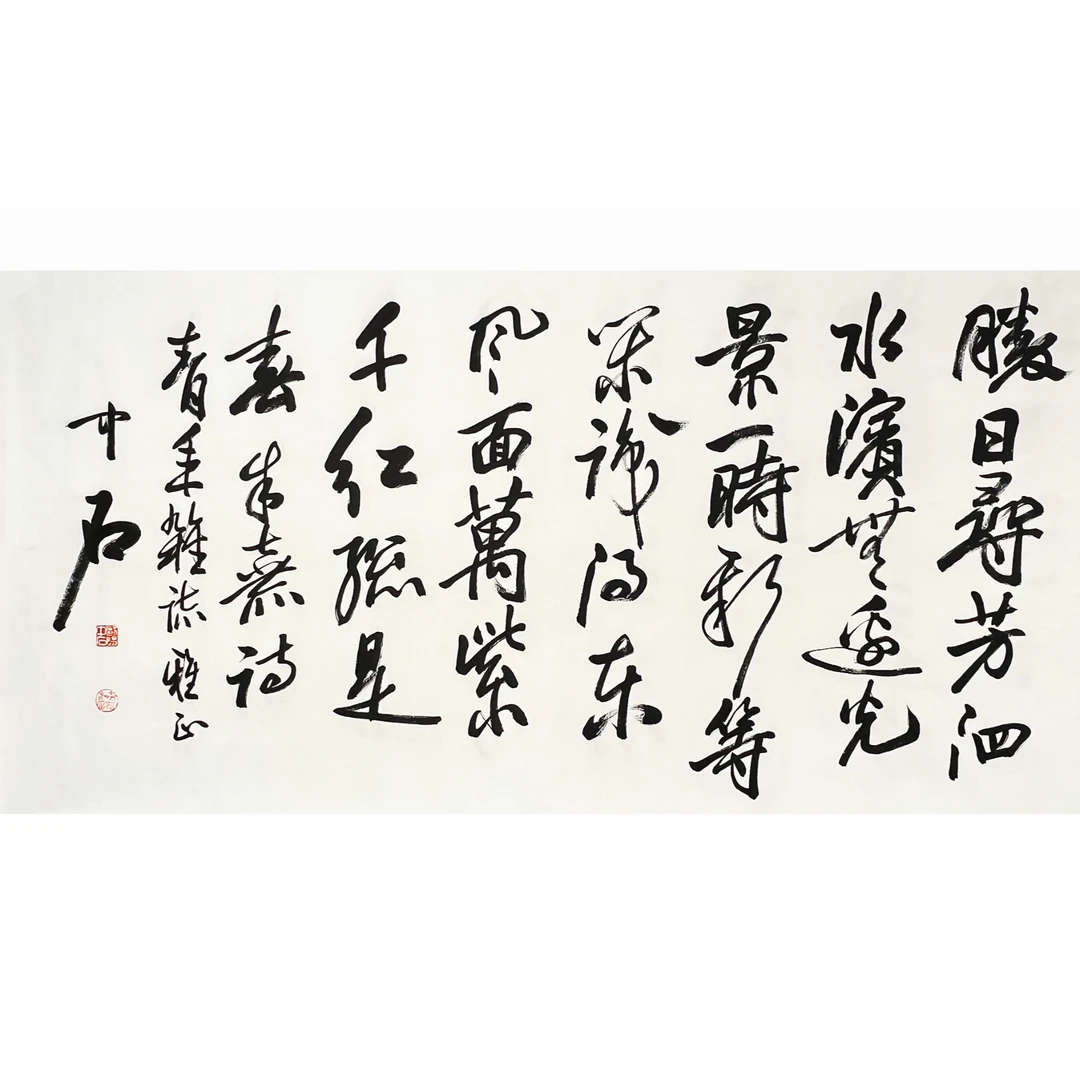 勝日尋芳泗
水濱無邊光
景一時新等
閑識得东
风面萬紫
千红總是
春 朱熹詩
青年雜誌雅正
中石